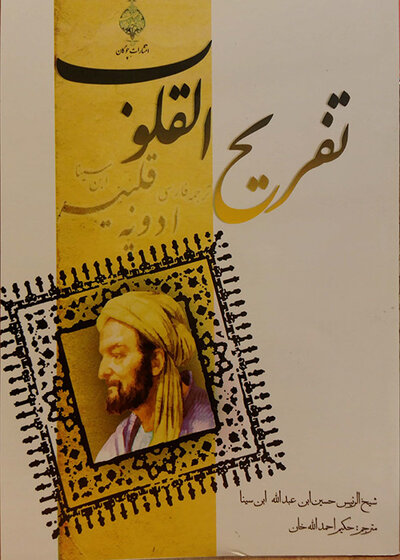 انتشارات چوگان
تفریح القلوب
ترجمه فارسی ادویه قلبیه
ابن سینا
شیخ الرئیس حسین ابن عبدالله ابن سینا
مترجم: حکیم احمدالله خان